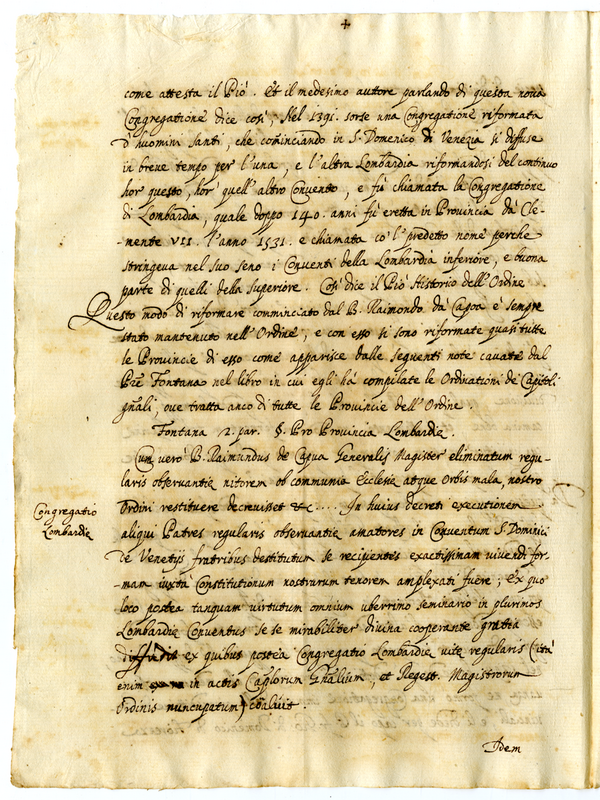 +
come attesta il Piò. Et il medesimo autore parlando di questa nova
Congregatione dice così, Nel 1391. sorse una Congregatione riformata
d'huomini santi, che cominciando in S. Domenico di Venezia si diffuse
in breve tempo per l'una, e l'altra Lombardia riformandosi del continuo
hor questo, hor quell'altro Convento, e fù chiamata la Congregatione
di Lombardia, quale doppo 140. anni fù eretta in Provincia da Cle-
-mente VII. l'anno 1531. e chiamata co'l predetto nome perche
stringeva nel suo seno i Conventi della Lombardia inferiore, e buona
parte di quelli della superiore. Così dice il Piò Historico dell'Ordine.
Questo modo di riformare comminciato dal B. Raimondo da Capoa è sempre
stato mantenuto nell'Ordine, e con esso si sono riformate quasi tutte
le Provincie di esso come apparisce dalle seguenti note cavate dal
Pre Fontana nel libro in cui egli hà compilate le Ordinationi de Capitoli
gnali, ove tratta anco di tutte le Provincie dell'Ordine.
Fontana 2. par. §. Pro Provincia Lombardiæ.
Cum verò B. Raimundus de Capua Generalis Magister eliminatum regu-
laris observantiæ nitorem ob communia Ecclesiæ atque Orbis mala, nostro
Ordini restituere decrevisset &c..... In huius decreti executionem
Congregatio
Lombardiæ
aliqui Patres regularis observantiæ amatores in Conventum S. Dominici
de Venetijs fratribus destitutum se recipientes exactissimam vivendi for-
-mam iuxtà Constitutionum nostrarum tenorem amplexati fuere; Ex quo
loco postea tanquam virtutum omnium uberrimo seminario in plurimos
Lombardiæ Conventus se se mirabiliter divina cooperante gratia
diffudit ex quibus posteà Congregatio Lombardiæ vitæ regularis (ità
enim in actis Caplorum Ghalium, et Regest. Magistrorum
Ordinis nuncupatum) coaluit.
Idem